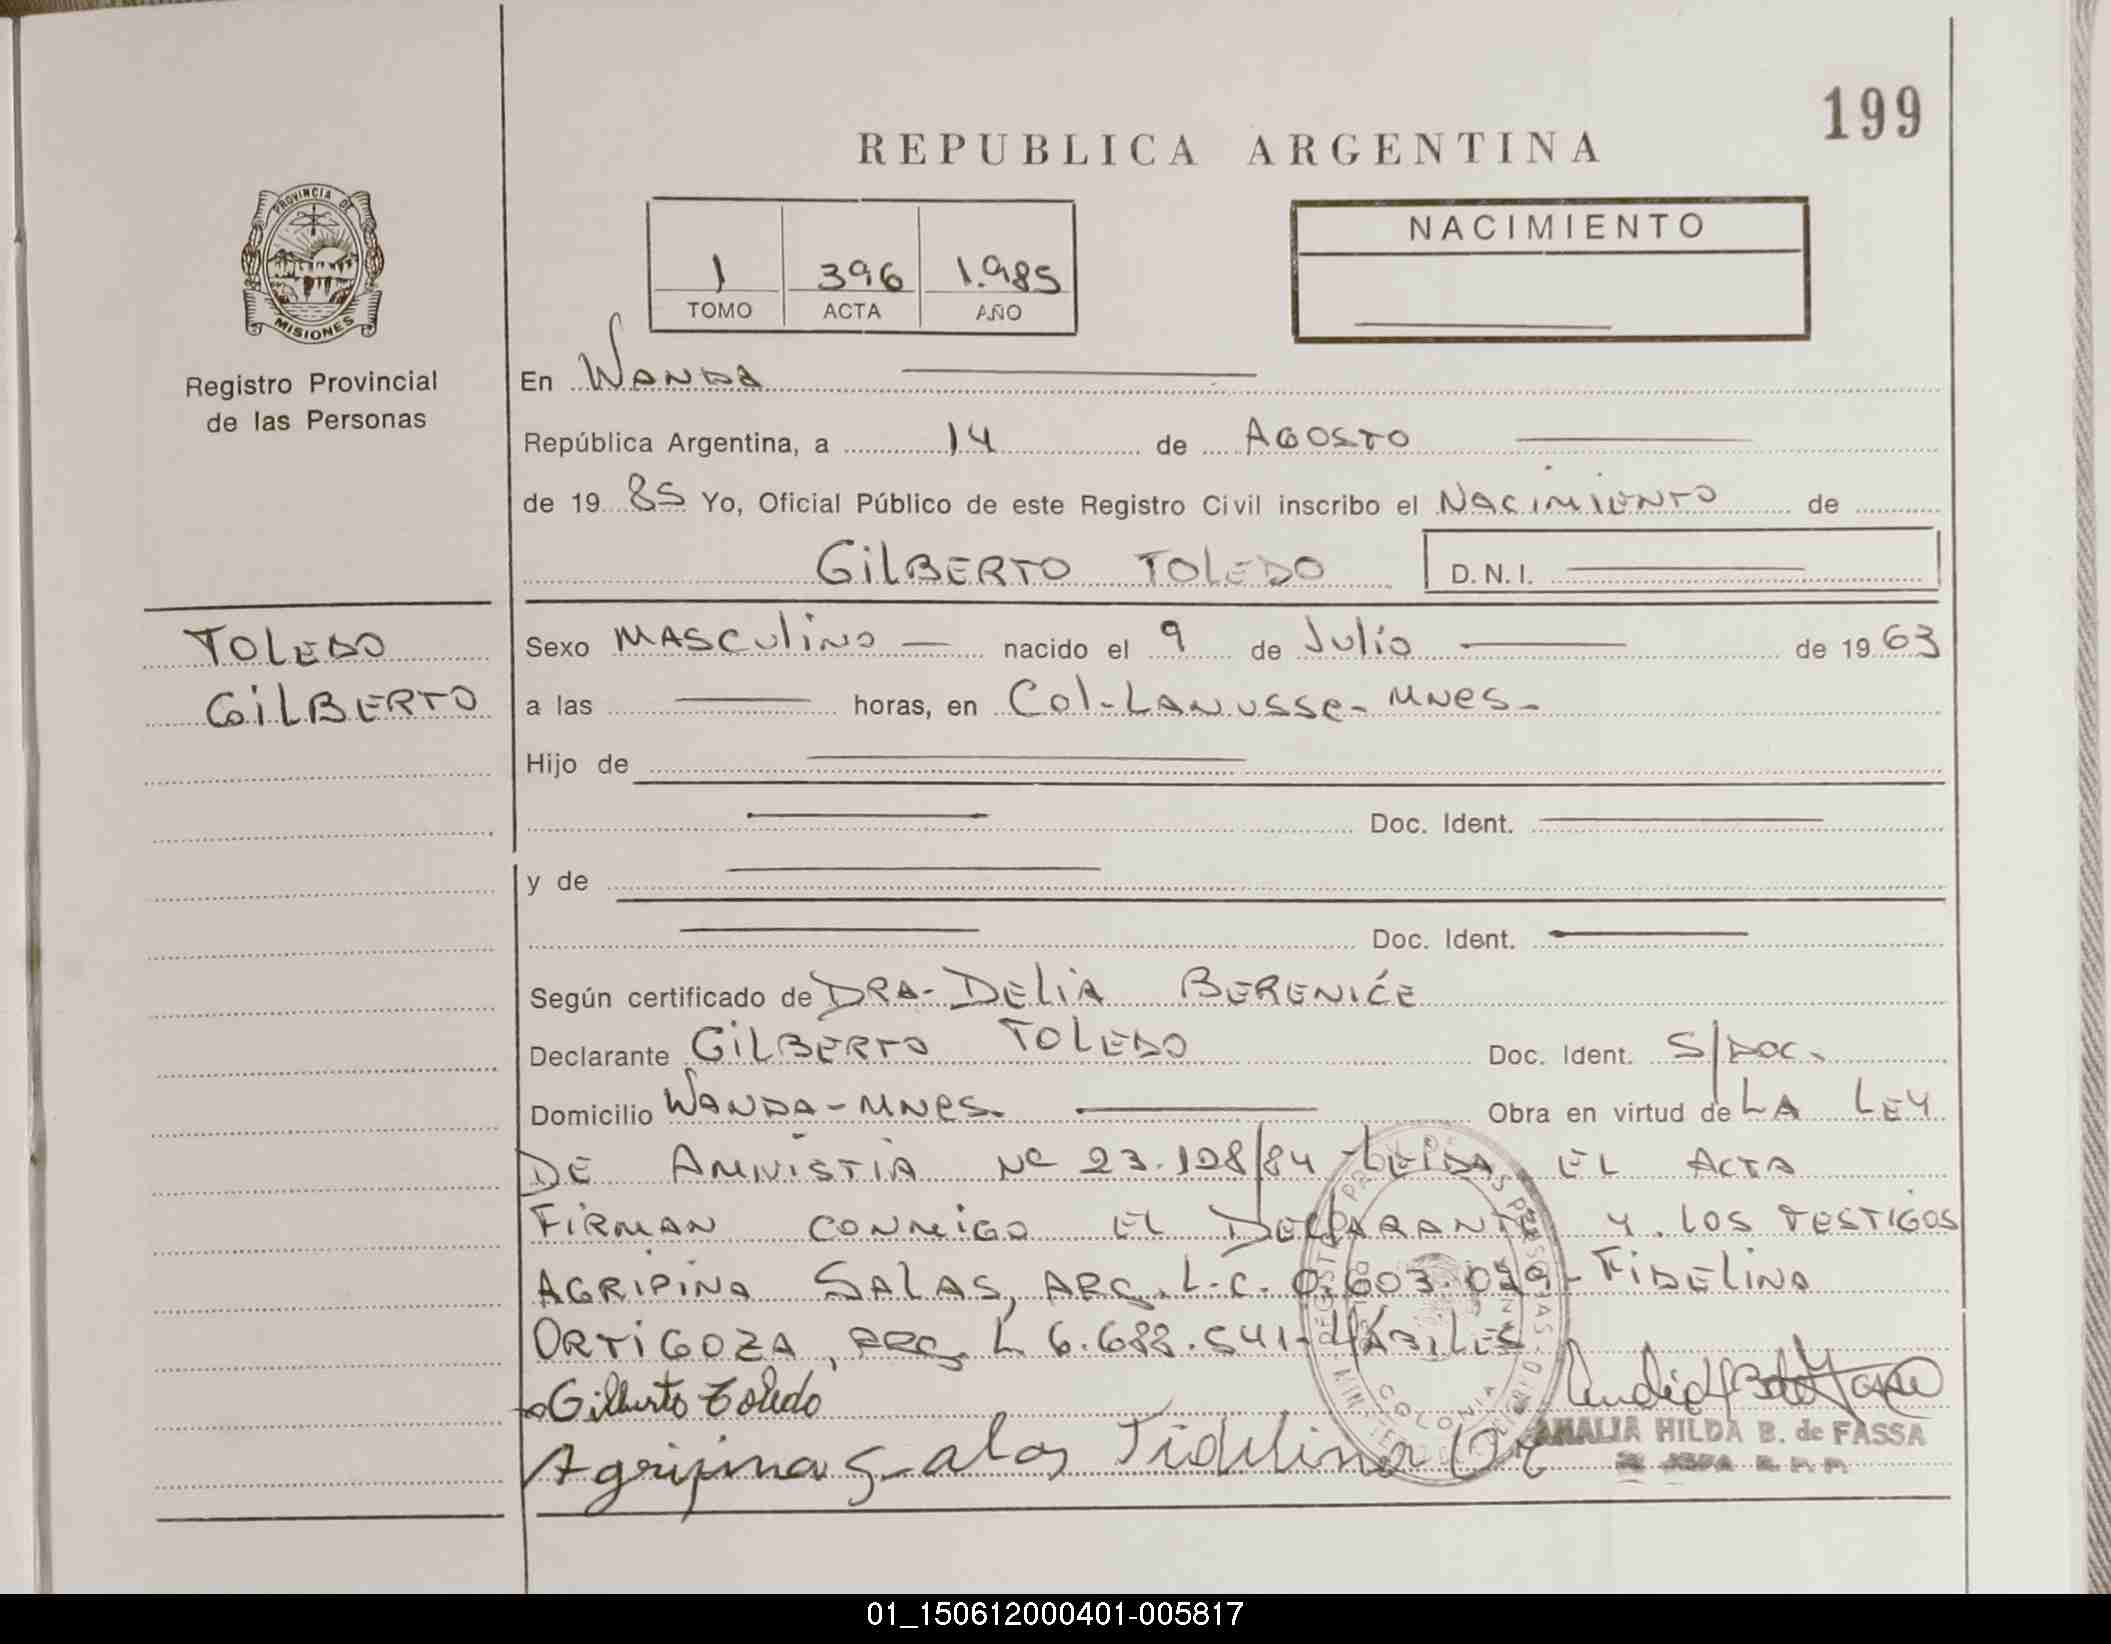 199
REPUBLICA ARGENTINA
PROVINCIA DE
MISIONES
Registro Provincial
de las Personas
1 396 1.985
TOMO ACTA AÑO
NACIMIENTO
En WANDA
República Argentina, a 14 de AGOSTO
de 19 85 Yo, Oficial Público de este Registro Civil inscribo el NACIMIENTO de
GILBERTO TOLEDO D.N.I.
TOLEDO
GILBERTO
Sexo MASCULINO nacido el 9 de Julio de 19 63
a las horas, en Col-LANUSSE- MNES-
Hijo de
Doc. Ident.
y de
Doc. Ident.
Según certificado de DRA- DELIA BERENICE
Declarante GILBERTO TOLEDO Doc. Ident. S/DOC.
Domicilio WANDA-MNES. Obra en virtud de LA LEY
DE AMNISTIA Nº 23.128/84 - LEIDA EL ACTA
FIRMAN CONMIGO EL DECLARANTE Y LOS TESTIGOS
AGRIPINA SALAS, ARG. L.C. 0.603. - FIDELINA
ORTIGOZA, ARG. L 6.688.541- HÁBILES
Gilberto Toledo
Agripina Salas Fidelina Or
AMALIA HILDA B. de FASSA
COLONIA
01_150612000401-005817